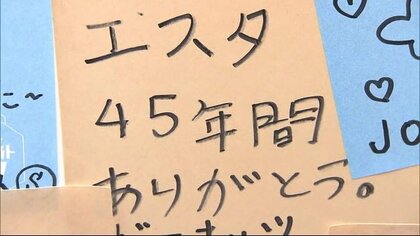 エスタ
45年間
ありがとう。
こ~
JO
S